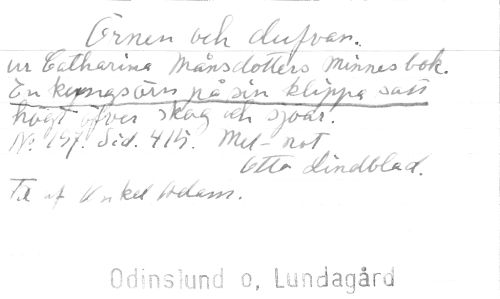 Örnen och dufvan.
ur Catharina Månsdotters minnesbok.
En kungsörn på sin klippa satt
högt öfver skog och sjöar.
No. 157. Sid. 415. Mel-not
Otto Lindblad.
Tx af Onkel Adam.
Odinslund o, Lundagård